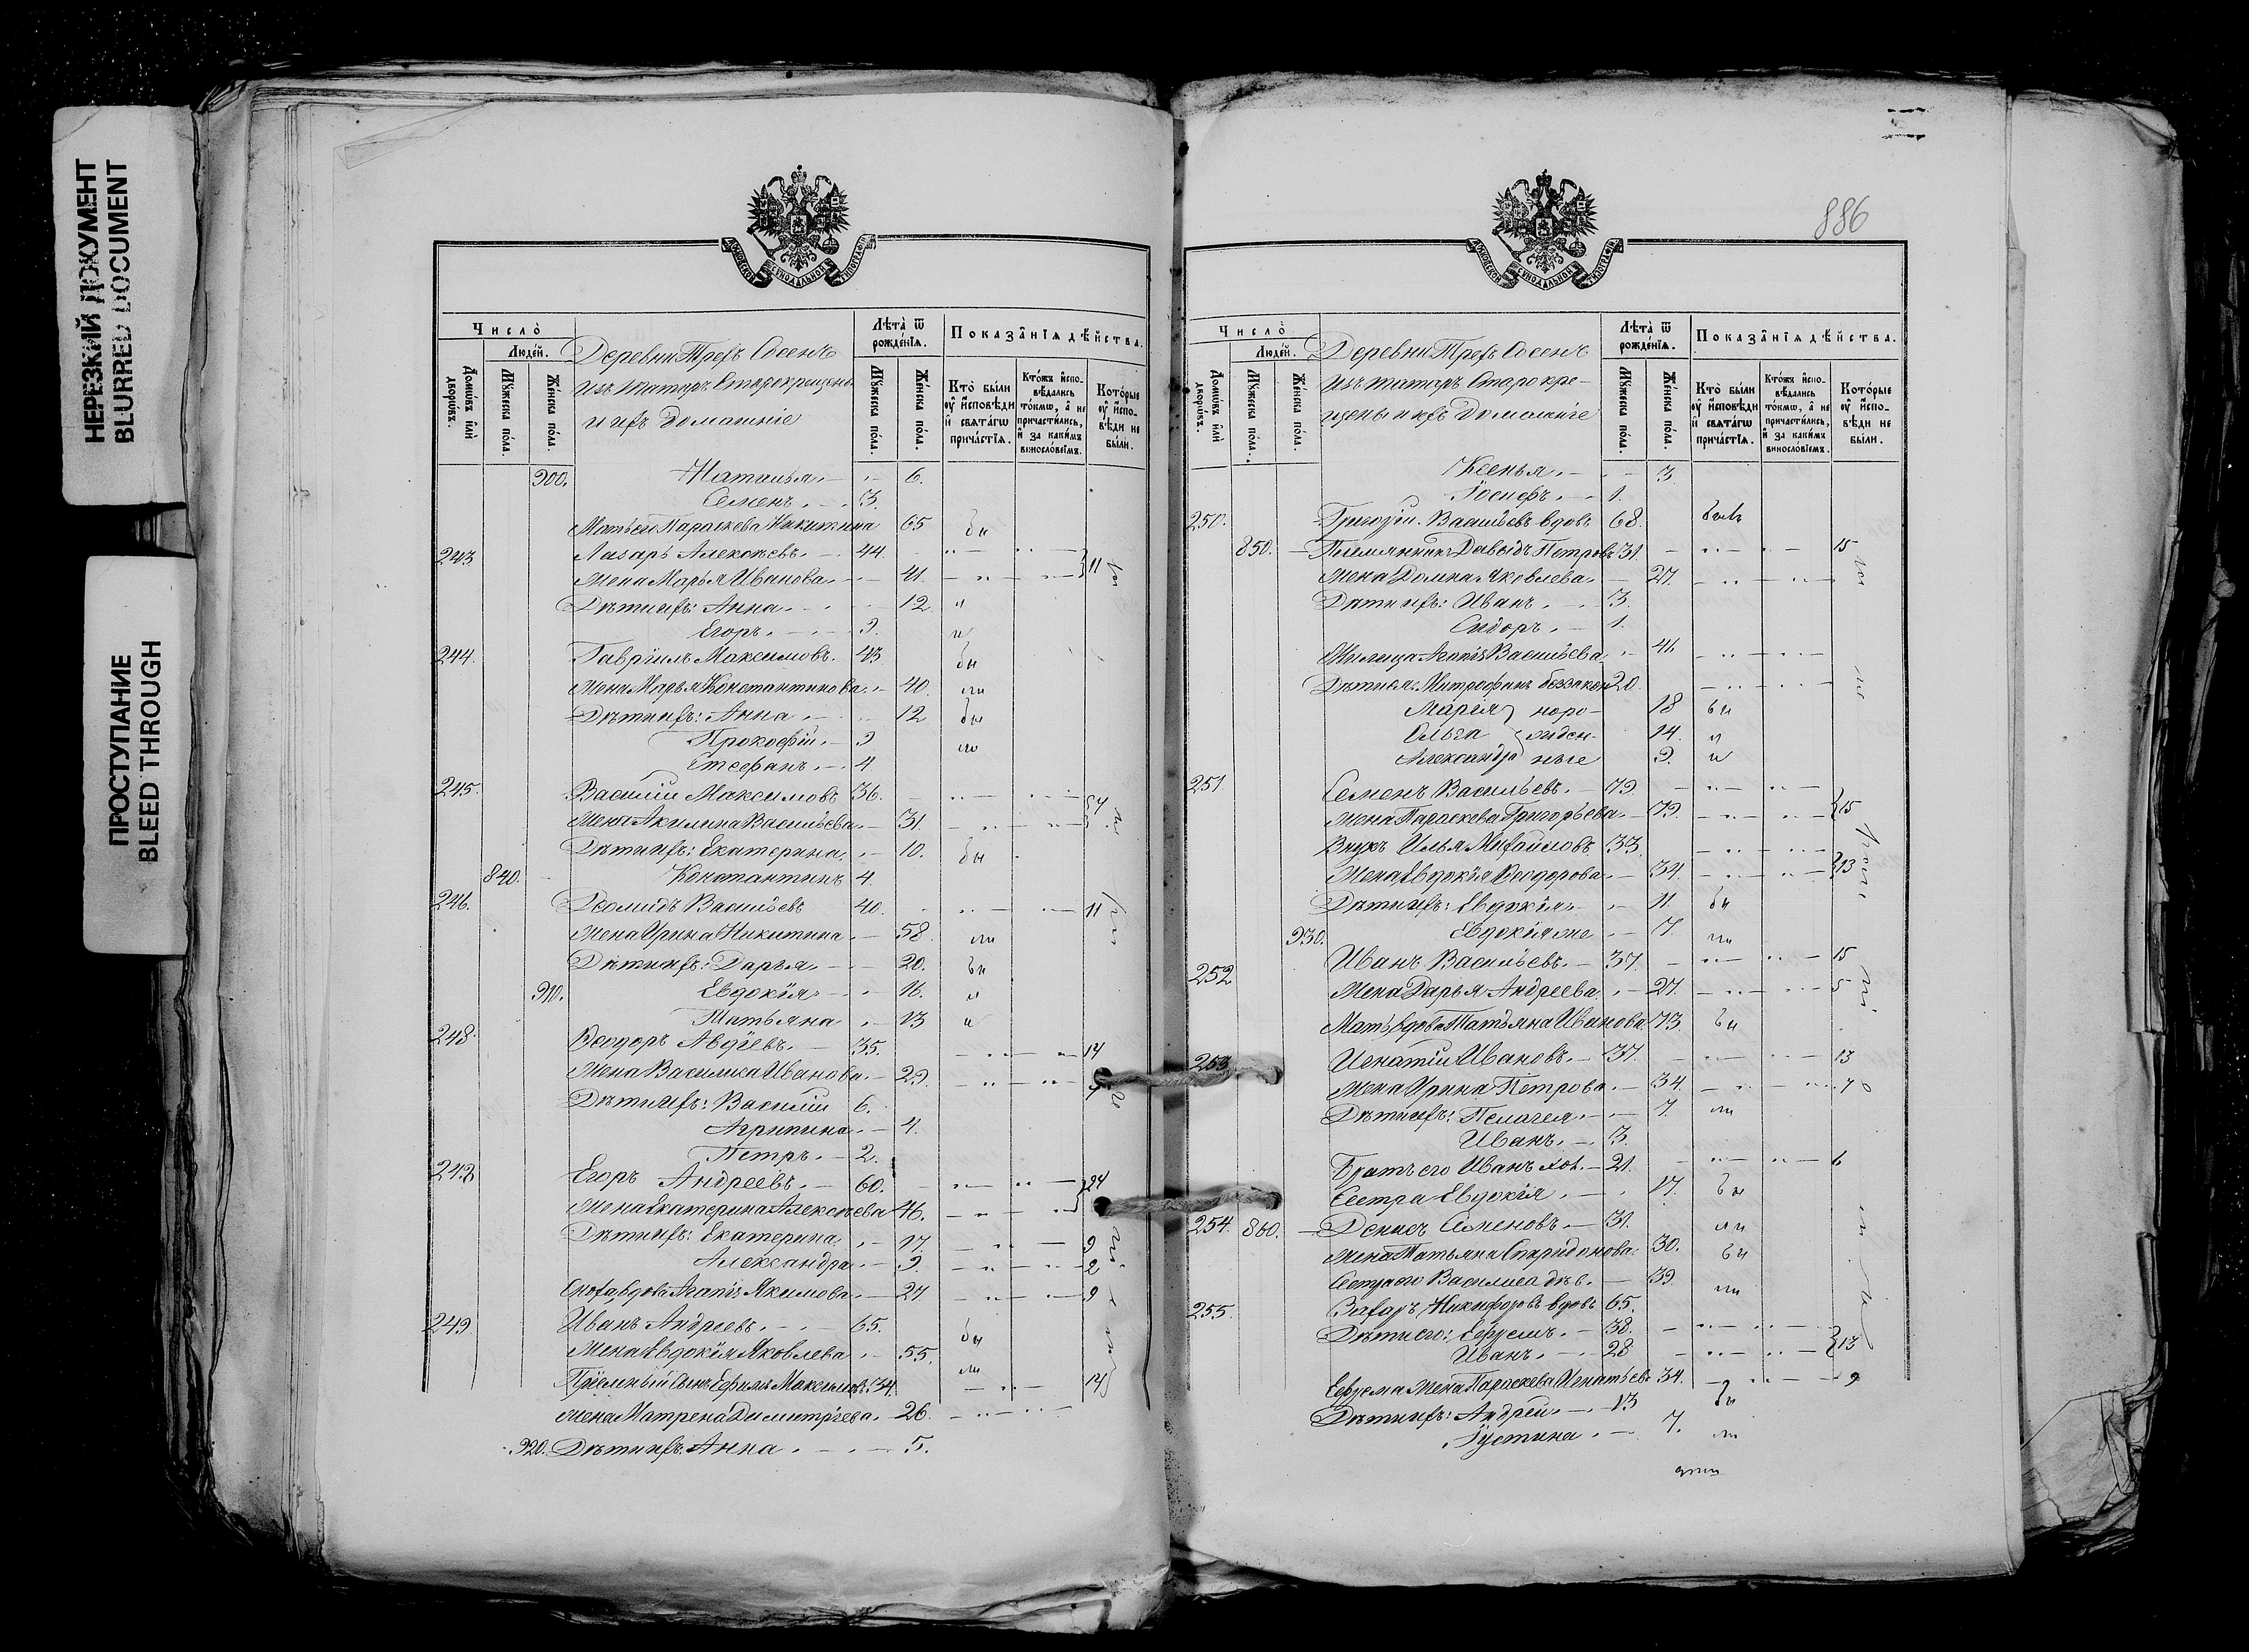 НЕРЕЗКИЙ ДОКУМЕНТ
BLURRED DOCUMENT
ПРОСТУПАНИЕ
BLEED THROUGH
МОСКОВСКОЙ СѴНОДАЛЬНОЙ ТИПОГРАФІИ
Число̀
Людей.
Домѡвъ или дворѡвъ.
Мꙋжеска пола.
Женска пола.
Деревни Трехъ Сосенъ
изъ татаръ Старокрещены
и ихъ домашніе
Лѣта ѿ рожденїѧ.
Мꙋжеска пола.
Женска пола.
Показанїѧ дѣйства.
Кто были оу исповѣди и свѧтагѡ причастїѧ.
Ктожъ исповѣдались токмѡ, а не причастились, и за какимъ винословїемъ.
Которые оу исповѣди не были.
900. Наталья 6.
Семенъ 3.
Мать ей Параскева Никитина 65 бы
243 Лазарь Алексѣевъ 44. 11
Жена Марья Иванова 41.
Дѣти ихъ: Анна 12
Егоръ 9.
244. Гавріилъ Максимовъ 43 бы
Жена Марья Константинова 40.
Дѣти ихъ: Анна 12 бы
Прокофій 9
Стефанъ 4
245. Василій Максимовъ 36.
Жена Акилина Васильева 31.
Дѣти ихъ: Екатерина 10. бы
840. Константинъ 4
246. Діомидъ Васильевъ 40. 11
Жена Ирина Никитина 58.
Дѣти ихъ: Дарья 20. бы
910. Евдокія 16.
Татьяна 13
248. Ѳеодоръ Авдѣевъ 35. 14
Жена Василиса Иванова 29.
Дѣти ихъ: Василій 6.
Агрипина 4.
Петръ 2.
248 Егоръ Андреевъ 60. 24
Жена Екатерина Алексѣева 46.
Дѣти ихъ: Екатерина 17. 9
Александра 9. 2
Сноха вдова Агапія Якимова 27. 9
249 Иванъ Андреевъ 65. бы
Жена Евдокія Яковлева 55.
Пріемный сынъ Ефимъ Максимовъ 34. 14
Жена Матрена Димитріева 26.
920. Дѣти ихъ: Анна 5.
886
МОСКОВСКОЙ СѴНОДАЛЬНОЙ ТИПОГРАФІИ
Число̀
Людей.
Домѡвъ или дворѡвъ.
Мꙋжеска пола.
Женска пола.
Деревни Трехъ Сосенъ
изъ татаръ Старокре-
щены и ихъ домашніе
Лѣта ѿ рожденїѧ.
Мꙋжеска пола.
Женска пола.
Показанїѧ дѣйства.
Кто были оу исповѣди и свѧтагѡ причастїѧ.
Ктожъ исповѣдались токмѡ, а не причастились, и за какимъ винословїемъ.
Которые оу исповѣди не были.
Ксенья 3
Іосифъ 1.
250. Григорій Васильевъ вдовъ 68. былъ
850. Племянникъ Давыдъ Петровъ 31. 15
Жена Домна Яковлева 27.
Дѣти ихъ: Иванъ 3.
Сидоръ 1.
Жилица Агапія Васильева 41
Дѣти ея: Митрофанъ беззакон 20.
Марія норо- 18 бы
Ольга жден- 14.
Александра ные 9.
251 Семенъ Васильевъ 79
Жена Параскева Григорьева 79. 15
Внукъ Илья Михайловъ 33
Жена Евдокія Ѳеодорова 34. 13
Дѣти ихъ: Евдокія 11 бы
930. Евдокія же 7.
252 Иванъ Васильевъ 37. 15
Жена Дарья Андреева 27. 5
Мать вдова Татьяна Иванова 73. бы
253 Игнатій Ивановъ 37. 13
Жена Ирина Петрова 34.
Дѣти ихъ: Пелагея 7.
Иванъ 3.
Братъ его Иванъ хол. 21. 6
Сестра Евдокія 17. бы
254. 860. Денисъ Семеновъ 31.
Жена Татьяна Спиридонова 30. бы
Сестра его Василиса дѣв. 39.
255. Захаръ Никифоровъ вдовъ 65.
Дѣти его: Ефремъ 38.
Иванъ 28 13
Ефрема жена Параскева Игнатьева 34. 9
Дѣти ихъ: Андрей 13 бы
Іустина 7.